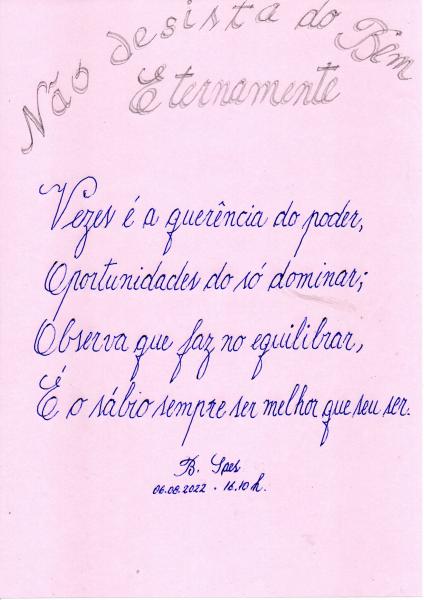 Não desista do Bem
Eternamente
Vezes é a querência do poder,
Oportunidades do só dominar;
Observa que faz no equilibrar,
É o sábio sempre ser melhor que seu ser.
B. Spes
06.08.2022 - 16.10 h.